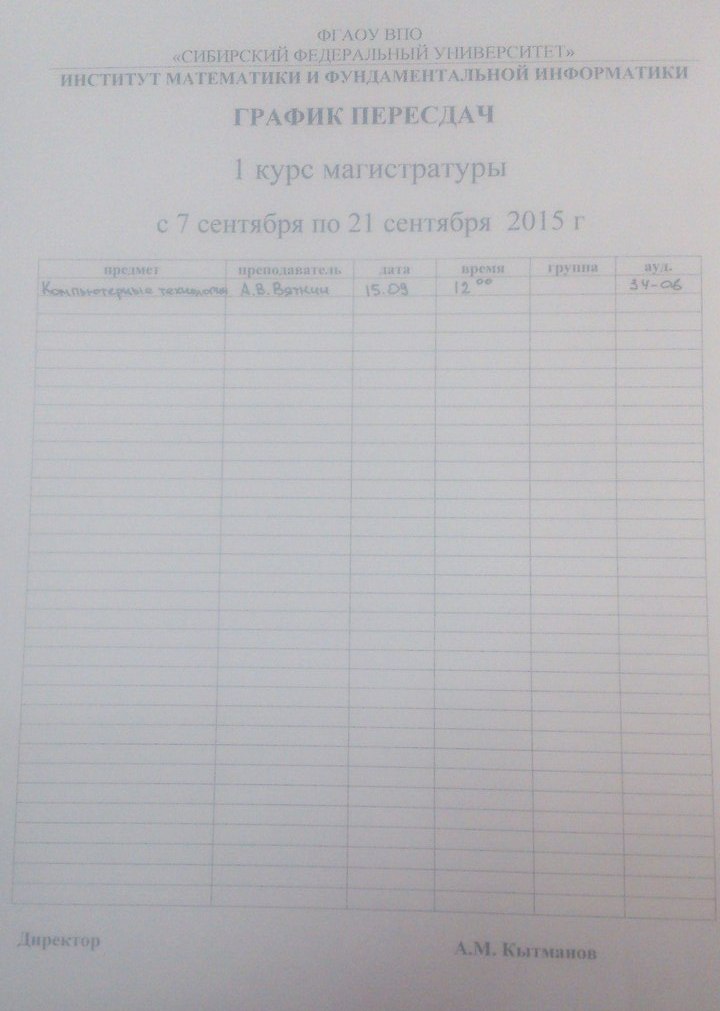 ФГАОУ ВПО
«СИБИРСКИЙ ФЕДЕРАЛЬНЫЙ УНИВЕРСИТЕТ»
ИНСТИТУТ МАТЕМАТИКИ И ФУНДАМЕНТАЛЬНОЙ ИНФОРМАТИКИ
ГРАФИК ПЕРЕСДАЧ
1 курс магистратуры
с 7 сентября по 21 сентября 2015 г
предмет преподаватель дата время группа ауд.
Компьютерные технологии А.В. Вяткин 15.09 12 00 34-06
Директор А.М. Кытманов